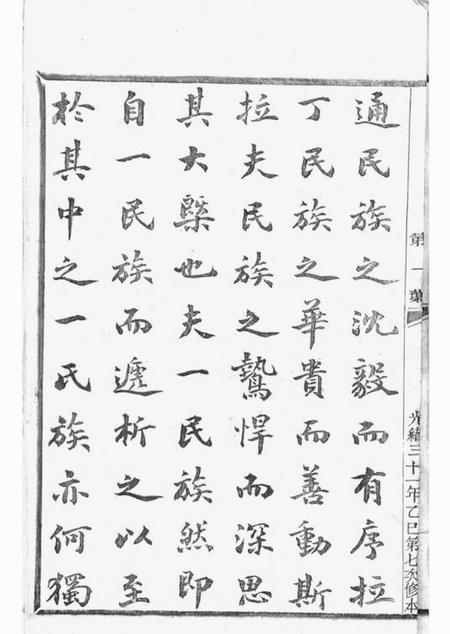 第一葉
光緒三十一年乙巳第七次修本
通民族之沈毅而有序拉
丁民族之華貴而善動斯
拉夫民族之鷙悍而深思
其大槩也夫一民族然即
自一民族而遞析之以至
於其中之一氏族亦何獨